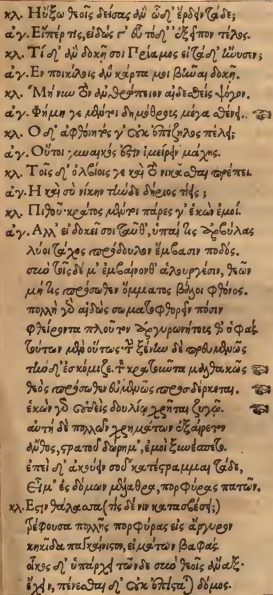 κλ. Ηὔξω θεοῖς δείσας ἂν ὧδ' ἔρδειν τάδε;
ἀγ. Εἴπερ τὶς, εἰδώς γ' εὖ τόδ' ἐξεῖπον τέλος.
κλ. Τί δ' ἂν δοκῇ σοι Πρίαμος εἰ τάδ' ἤνυσεν;
ἀγ. Εν ποικίλοις ἂν κάρτα μοι βῆναι δοκῇ.
κλ. Μή νιν τὸν ἀνθρώπειον αἰδεσθεὶς ψόγον.
ἀγ. Φήμη γε μέντοι δημόθροις μέγα σθένει.
κλ. Ο δ' ἀφθόνητός γ' οὐκ ἐπίζηλος πέλει;
ἀγ. Οὔτοι γυναικός ἐστιν ἱμείρειν μάχης.
κλ. Τοῖς δ' ὀλβίοις γε καὶ τὸ νικᾶσθαι πρέπει.
ἀγ. Η καὶ σὺ νίκην τήνδε δήριος τίεις;
κλ. Πιθοῦ· κράτος μέντοι πάρες γ' ἑκὼν ἐμοί.
ἀγ. Αλλ' εἰ δοκεῖ σοι ταῦθ', ὑπαί τις ἀρβύλας
λύοι τάχος πρόδουλον ἔμβασιν ποδός.
σὺν ταῖσδέ μ' ἐμβαίνονθ' ἁλουργέσιν, θεῶν
μή τις πρόσωθεν ὄμματος βάλοι φθόνος.
πολλὴ γὰρ αἰδὼς σωματοφθορεῖν ποσὶν
φθείροντα πλοῦτον ἀργυρωνήτους θ' ὑφάς.
τούτων μὲν οὕτως· τὴν ξένην δὲ πρευμενῶς
τήνδ' ἐσκόμιζε. τὸν κρατοῦντα μαλθακῶς
θεὸς πρόσωθεν εὐμενῶς προσδέρκεται.
ἑκὼν γὰρ οὐδεὶς δουλίῳ χρῆται ζυγῷ.
αὐτὴ δὲ πολλῶν χρημάτων ἐξαίρετον
ἄνθος, στρατοῦ δώρημ', ἐμοὶ ξυνέσπετο.
ἐπεὶ δ' ἀκούειν σοῦ κατέστραμμαι τάδε,
εἶμ' ἐς δόμων μέλαθρα, πορφύρας πατῶν.
κλ. Εστιν θάλασσα (τίς δέ νιν κατασβέσει;)
τρέφουσα πολλῆς πορφύρας εἰς ἄργυρον
κηκῖδα παγκαίνιστον, εἱμάτων βαφάς.
οἶκος δ' ὑπάρχει τῶνδε σὺν θεοῖς ἄναξ·
ἔχειν, πένεσθαι δ' οὐκ ἐπίσταται δόμος.